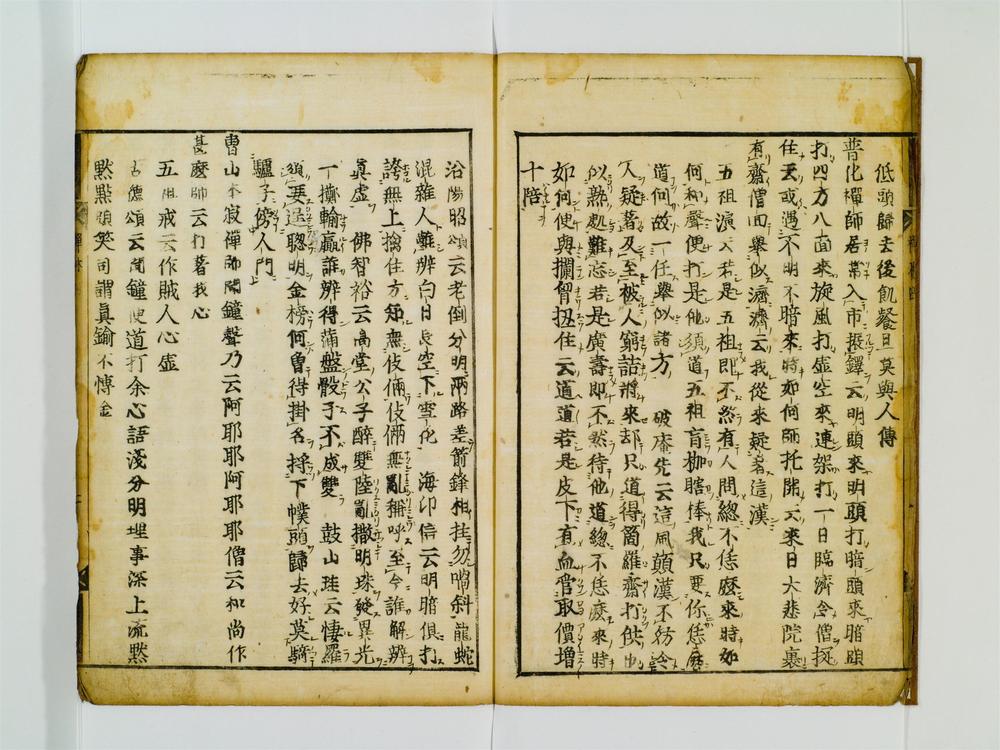 低頭歸去後飢餐且莫與人傳
普化禪師居常入市振鐸云明頭來明頭打暗頭來暗頭
打四方八面來旋風打虛空來連架打一日臨濟令僧捉
住云或遇不明不暗來時如何師托開云來日大悲院裏
有齋僧回舉似濟濟云我從來疑著這漢
五祖演云若是五祖即不然有人問總不恁麼來時如
何和聲便打是他須道五祖盲枷瞎棒我只要你恁麼
道何故一任舉似諸方 破庵先云這風顛漢不妨
人疑著及至被人窮詰將來却只道得箇羅齋打供
以熟處難忘若是廣壽即不然待他道總不恁麼來時
如何便與攔胷扭住云道道若是皮下有血管取價增
十陪
汾陽昭頌云老倒分明兩路差箭鋒相拄勿喎斜龍蛇
混雜人難辨白日長空下雪花 海印信云明暗俱打
誇無上擒住方知無伎倆伎倆無亂稱呼至今誰解辨
眞虛 佛智裕云高堂公子醉雙陸亂撒明珠發異光
一擲輸贏誰辨得蒲盤骰子不成雙 鼓山珪云悽羅
須要逞聰明金榜何曾得掛名捋下幞頭歸去好莫騎
驢子傍人門
曹山本寂禪師聞鐘聲乃云阿耶耶阿耶耶僧云和尚作
甚麼師云打著我心
五祖戒云作賊人心虛
古德頌云聞鐘便道打余心語淺分明埋事深上流默
默點頭笑可謂眞鍮不慱金